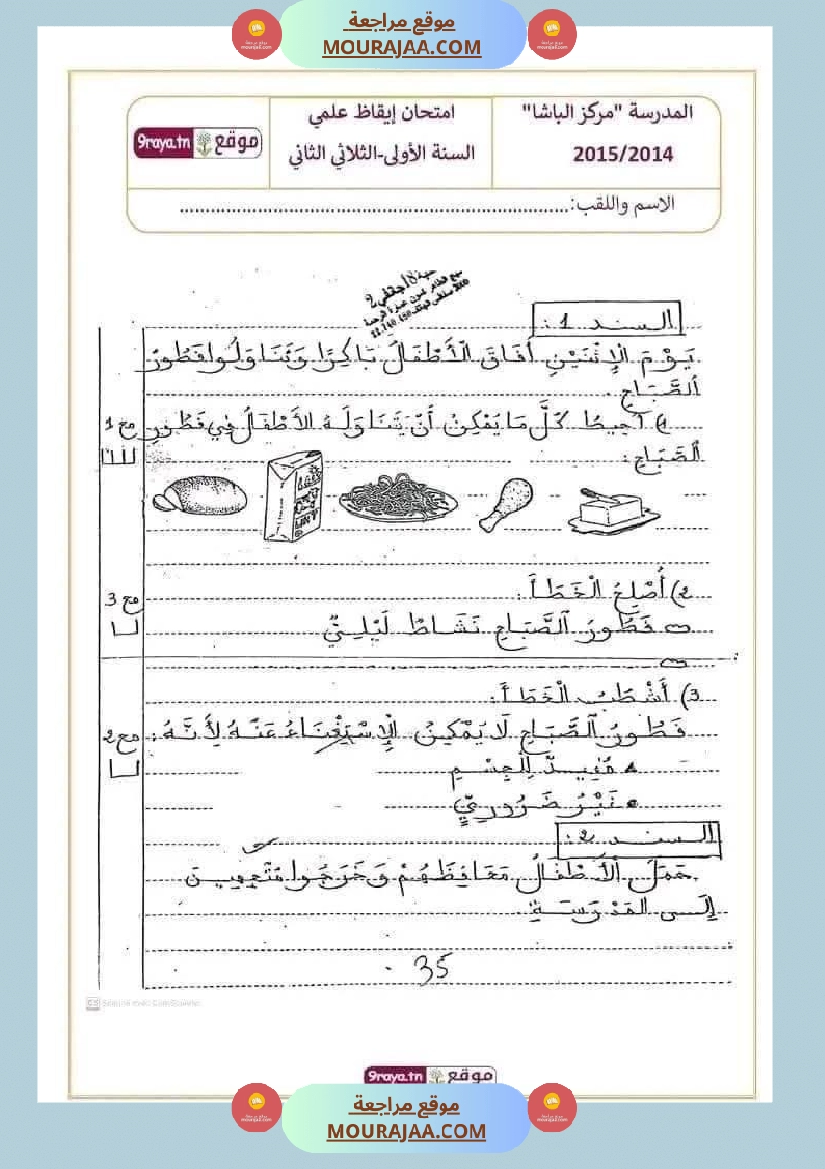 موقع مراجعة
MOURAJAA.COM
المدرسة "مركز الباشا"
2015/2014
امتحان إيقاظ علمي
السنة الأولى-الثلاثي الثاني
موقع 9raya.tn
الاسم واللقب:................................
السند 1:
يَوْمَ الِاثْنَيْنِ أَفَاقَ الْأَطْفَالُ بَاكِرًا وَتَنَاوَلُوا فَطُورَ
الصَّبَاحِ.
1) أُحِيطُ كُلَّ مَا يُمْكِنُ أَنْ يَتَنَاوَلَهُ الأَطْفَالُ فِي فَطُورِ
الصَّبَاحِ:
مع 1
2) أُصْلِحُ الْخَطَأَ:
مع 3
فَطُورُ الصَّبَاحِ نَشَاطٌ لَيْلِيٌّ
3) أَشْطُبُ الْخَطَأَ:
فَطُورُ الصَّبَاحِ لَا يُمْكِنُ الْإِسْتِغْنَاءُ عَنْهُ لِأَنَّهُ:
مع 2
مُفِيدٌ لِلْجِسْمِ
غَيْرُ ضَرُورِيٍّ
السند 2:
حَمَلَ الْأَطْفَالُ مَحَافِظَهُمْ وَخَرَجُوا مُتَّجِهِينَ
إِلَى المَدْرَسَةِ.
35
CS
موقع 9raya.tn
موقع مراجعة
MOURAJAA.COM